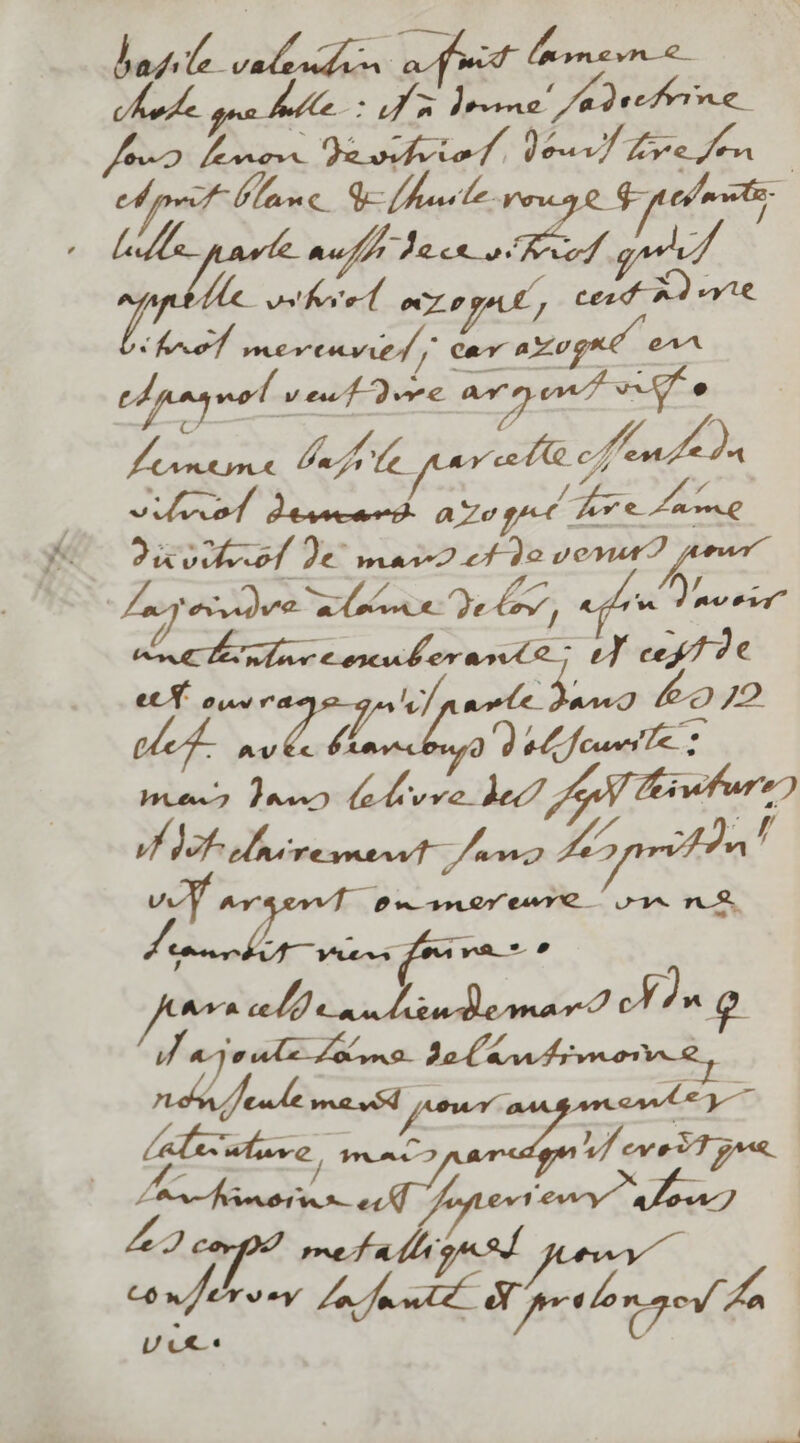 basile valentin a fait lameme
chose que lulle : il a donné sadoctrine
sous lenom devitriol, douil tire son
esprit blanc & lhuile rouge & pesante;
lulle parle aussi dece vitriol quil
appelle vitriol azoqué, cest àdire
vitriol mercuriel; car azogué en
espagnol veut dire argent vif.
lememe basile par cette essense du
vitriol demars azoqué tire lame
du vitriol de mars et de venus pour
lajoindre alame delor, afin davoir
une teinture exuberante; et cest de
cet ouvrage quil parle dans les 12
clef avec beaucoup dobscurité;
mais dans lelivre des sept teintures
il dit clairement sans lésprit du
vif argent ou mercure on ne
scauroit rien faire.
paracelse aulieu de mars et du ♀
il ajoute lame delantimoine,
non seulement pour augmenter
lateinture, mais parcequil croit que
lantimoine est superieur atous
les corps metalliques pour
conserver lasanté et prolonger la
vie.